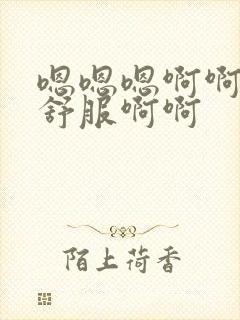 嗯嗯嗯啊啊
舒服啊啊
陌上荷香